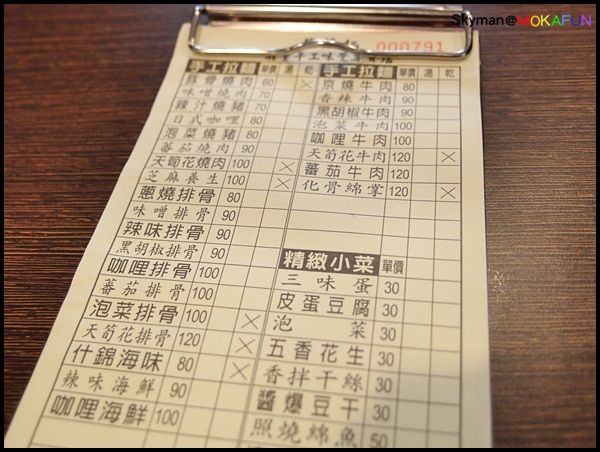 Skyman@MOKAFUN
000791
手工拉麵 單價 湯 乾
豚骨燒肉 60 ×
味噌燒肉 70
辣汁燒豬 70
日式咖哩 80
泡菜燒豬 80
蕃茄燒肉 90
天荀花燒肉 100 ×
芝麻養生 100 ×
蔥燒排骨 80
味噌排骨 90
辣味排骨 90
黑胡椒排骨 90
咖哩排骨 100
蕃茄排骨 100
泡菜排骨 100 ×
天荀花排骨 120 ×
什錦海味 80 ×
辣味海鮮 90
咖哩海鮮 100
手工拉麵 單價 湯 乾
京燒牛肉 80
香辣牛肉 90
黑胡椒牛肉 90
泡菜牛肉 100
咖哩牛肉 100
天荀花牛肉 120 ×
蕃茄牛肉 120
化骨綿掌 120 ×
精緻小菜 單價
三味蛋 30
皮蛋豆腐 30
泡菜 30
五香花生 30
香拌干絲 30
醬爆豆干 30
照燒綿魚 50